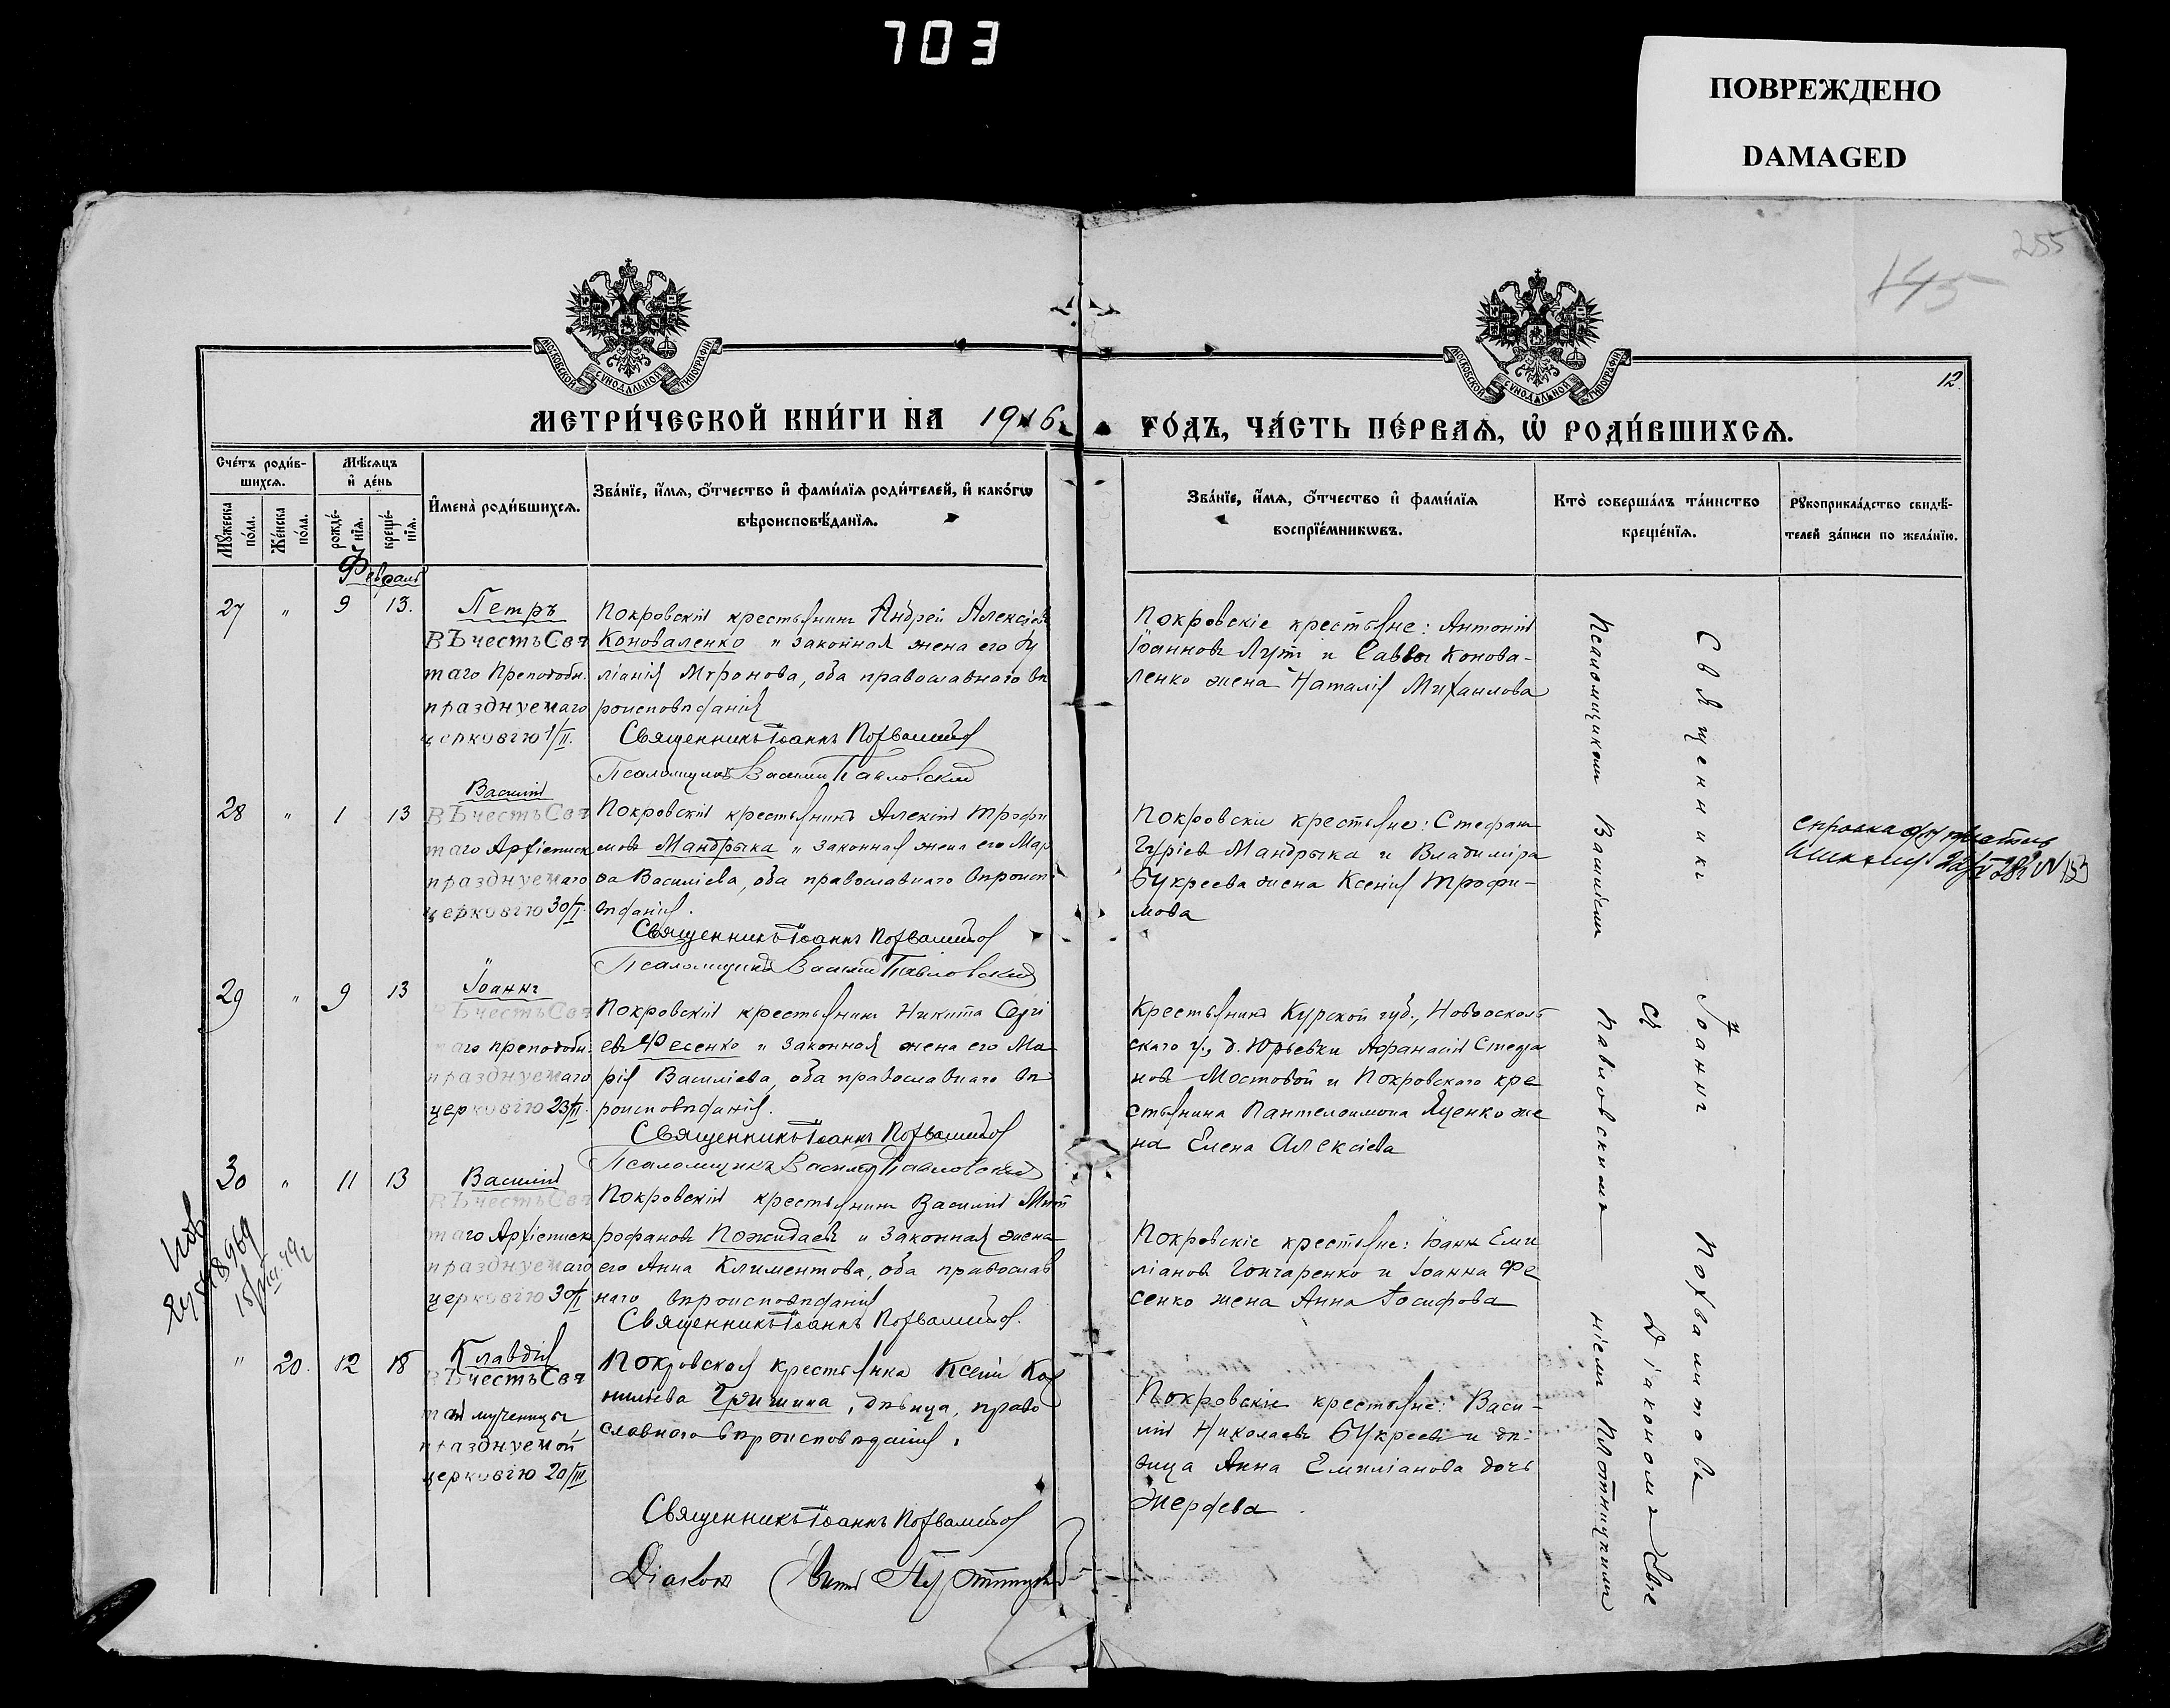 703
ПОВРЕЖДЕНО
DAMAGED
255
145
12.
МОСКОВСКОЙ СѴНОДАЛЬНОЙ ТИПОГРАФІИ
МОСКОВСКОЙ СѴНОДАЛЬНОЙ ТИПОГРАФІИ
МЕТРИ́ЧЕСКОЙ КНИ́ГИ НА 1916
ГО́ДЪ, ЧА́СТЬ ПЕ́РВАѦ, Ѡ҆ РОДИ́ВШИХСѦ.
Сче́тъ роди́в-
шихсѧ.
Мѣ́сѧцъ
и҆ де́нь
Мꙋ́жеска
по́ла.
Же́нска
по́ла.
рожде́-
нїѧ.
креще́-
нїѧ.
И҆мена̀ роди́вшихсѧ.
Зва́нїе, и҆́мѧ, ѻ҆́тчество и҆ фами́лїѧ роди́телей, и҆ како́гѡ
вѣроисповѣ́данїѧ.
Зва́нїе, и҆́мѧ, ѻ҆́тчество и҆ фами́лїѧ
воспрїе́мникѡвъ.
Кто̀ соверша́лъ та́инство
креще́нїѧ.
Рꙋкоприкла́дство свидѣ́-
телей за́писи по жела́нїю.
Февраль
27 " 9 13.
Петръ
ВЪ честь Свя
таго Преподобн.
празднуемаго
церковію 1/II.
Покровскій крестьянинъ Андрей Алексѣевъ
Коноваленко и законная жена его Іу
ліанія Миронова, оба православнаго вѣ
роисповѣданія
Священникъ Іоаннъ Похвалитов
Псаломщикъ Василій Павловский
Покровскіе крестьяне: Антоній
Іоанновъ Лутъ и Саввы Конова-
ленко жена Наталія Михаилова
28 " 1 13
Василій
ВЪ честь Свя
таго Архіеписк
празднуемаго
церковію 30/I.
Покровскій крестьянинъ Алексій Трофи
мовъ Мандрыка и законная жена его Мар
ѳа Василіева, оба православнаго вѣроисп.
вѣданія.
Священникъ Іоаннъ Похвалитов
Псаломщикъ Василій Павловский
Покровскіе крестьяне: Стефанъ
Гуріевъ Мандрыка и Владиміра
Букреева жена Ксенія Трофи-
мова
справка
29 " 9 13
Іоаннъ
ВЪ честь Свя
таго преподобн.
празднуемаго
церковію 23/II.
Покровскій крестьянинъ Никита Сергі
евъ Фесенко и законная жена его Ма
рія Василіева, оба православнаго вѣ
роисповѣданія.
Священникъ Іоаннъ Похвалитов
Псаломщикъ Василій Павловский
Крестьянинъ Курской губ., Новооскол
скаго у., д. Юрьевки Аѳанасій Стефа
новъ Мостовой и Покровскаго кре
стьянина Пантелеимона Яценко же
на Елена Алексіева
30 " 11 13
Василій
ВЪ честь Свя
таго Архіеписк
празднуемаго
церковію 30/I
Покровскій крестьянинъ Василій Мит
рофановъ Пожидаевъ и законная жена
его Анна Климентова, оба православ
наго вѣроисповѣданія
Священникъ Іоаннъ Похвалитов.
Покровскіе крестьяне: Іоаннъ Еми
ліановъ Гончаренко и Іоанна Фе
сенко жена Анна Іосифова
" 20. 12 18
Клавдія
ВЪ честь Свя
той мученицы
празднуемой
церковію 20/III
Покровская крестьянка Ксенія Кор
нильева Гришина, дѣвица, право
славнаго вѣроисповѣданія.
Священникъ Іоаннъ Похвалитов
Діаконъ
Покровскіе крестьяне: Васи-
лій Николаевъ Букреевъ и дѣ-
вица Анна Емиліанова дочь
Жердева
Священникъ Іоаннъ Похвалитовъ
съ Діакономъ Евге
Псаломщикомъ Василіемъ Павловскимъ
ніемъ Плотницкимъ